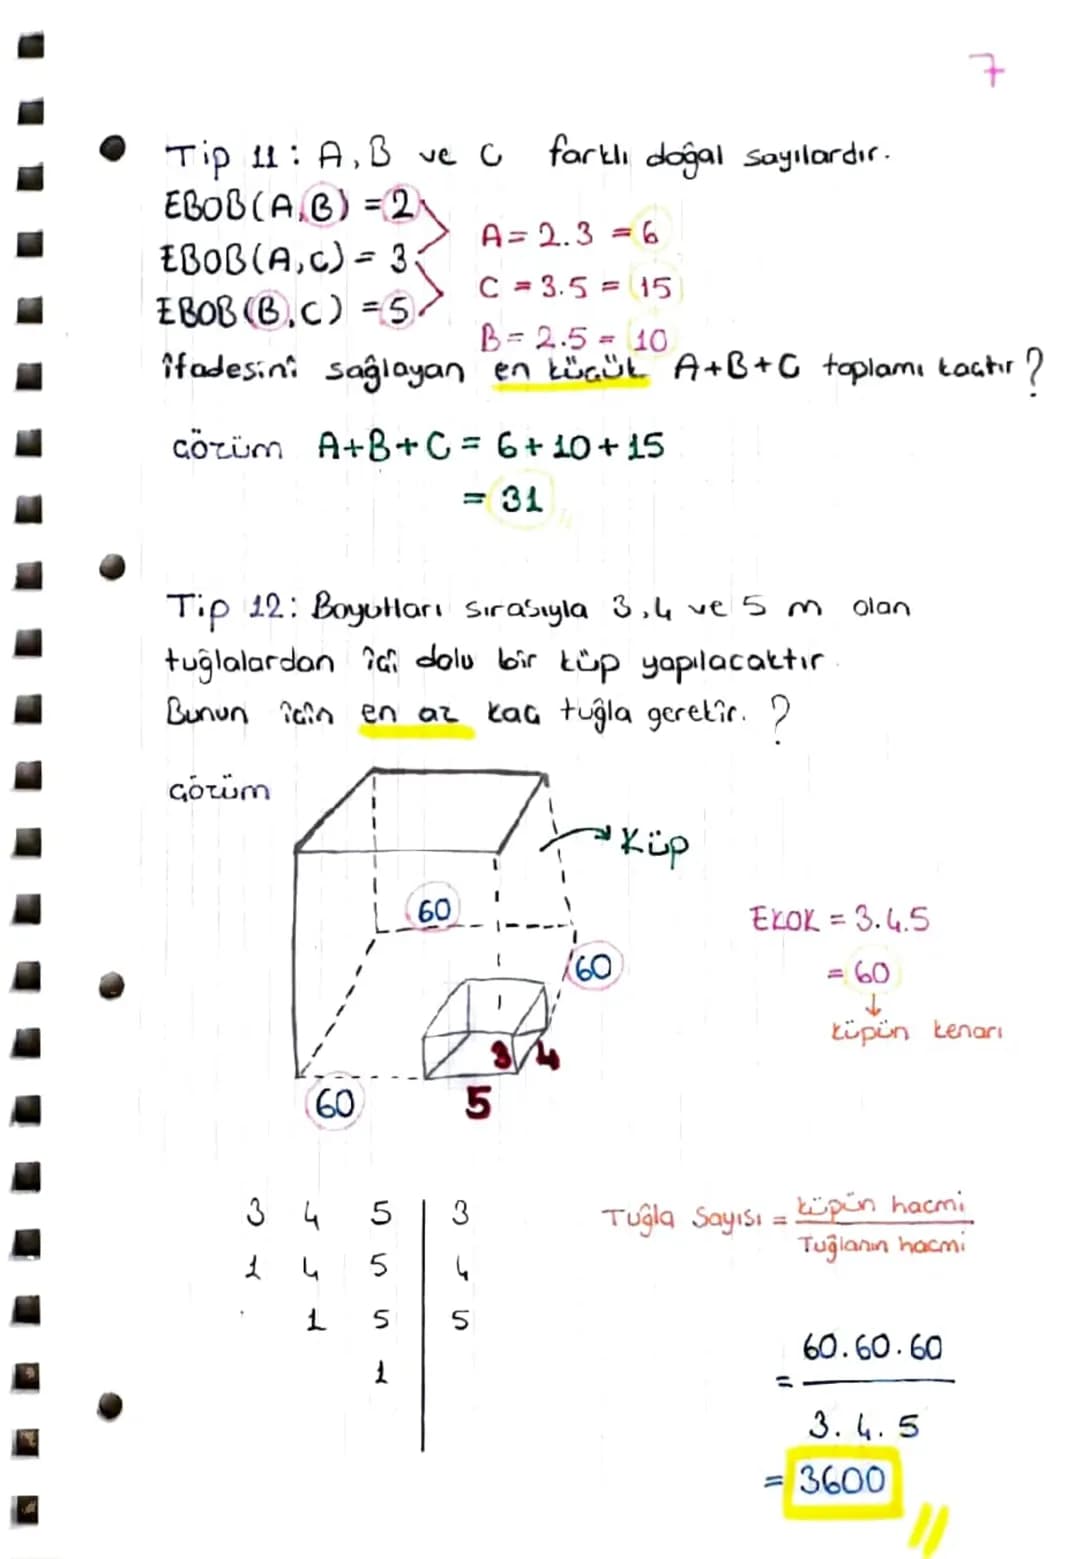 7
Tip 11: A, B ve C farklı doğal sayılardır.
EBOB(A,B) = 2
EBOB(A,C) = 3
EBOB(B,C) = 5
A = 2.3 = 6
C = 3.5 = 15
B = 2.5 = 10
ifadesini sağlayan en küçük A+B+C toplamı kaçtır?
Çözüm A+B+C = 6+10+15
= 31
Tip 12: Boyutları sırasıyla 3,4 ve 5 m olan
tuğlalardan içi dolu bir küp yapılacaktır.
Bunun için en az kaç tuğla gerekir. ?
Çözüm
Küp
60
60
60
3 4
5
EKOK = 3.4.5
= 60
↓
küpün kenarı
3 4 5 | 3
1 4 5 | 4
1 5 | 5
1
Tuğla Sayısı = küpün hacmi
Tuğlanın hacmi
= 60.60.60
3.4.5
= 3600